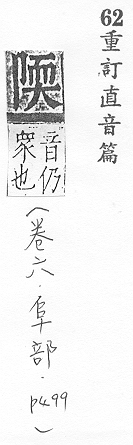 62重訂直音篇
陾
音仍
眾也
（卷六．阜部．p499）